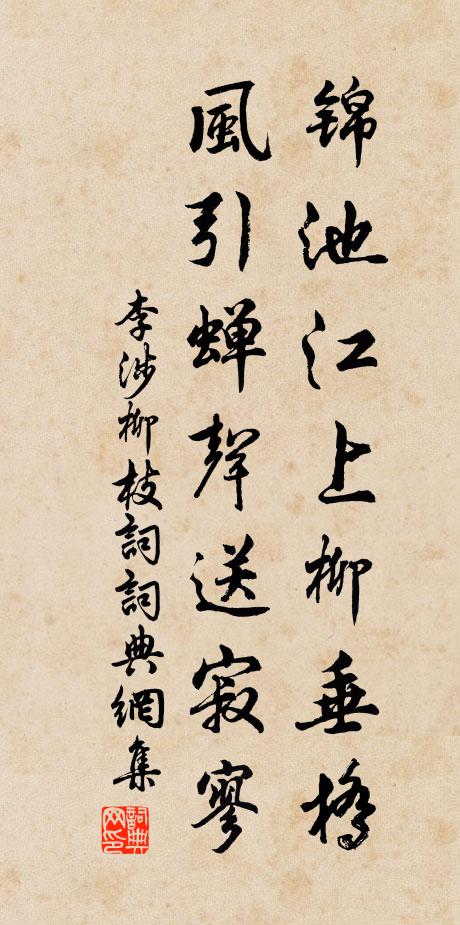 锦池江上柳垂桥
風引蝉聲送寂寥
李涉柳枝詞詞典網集
詞典网印